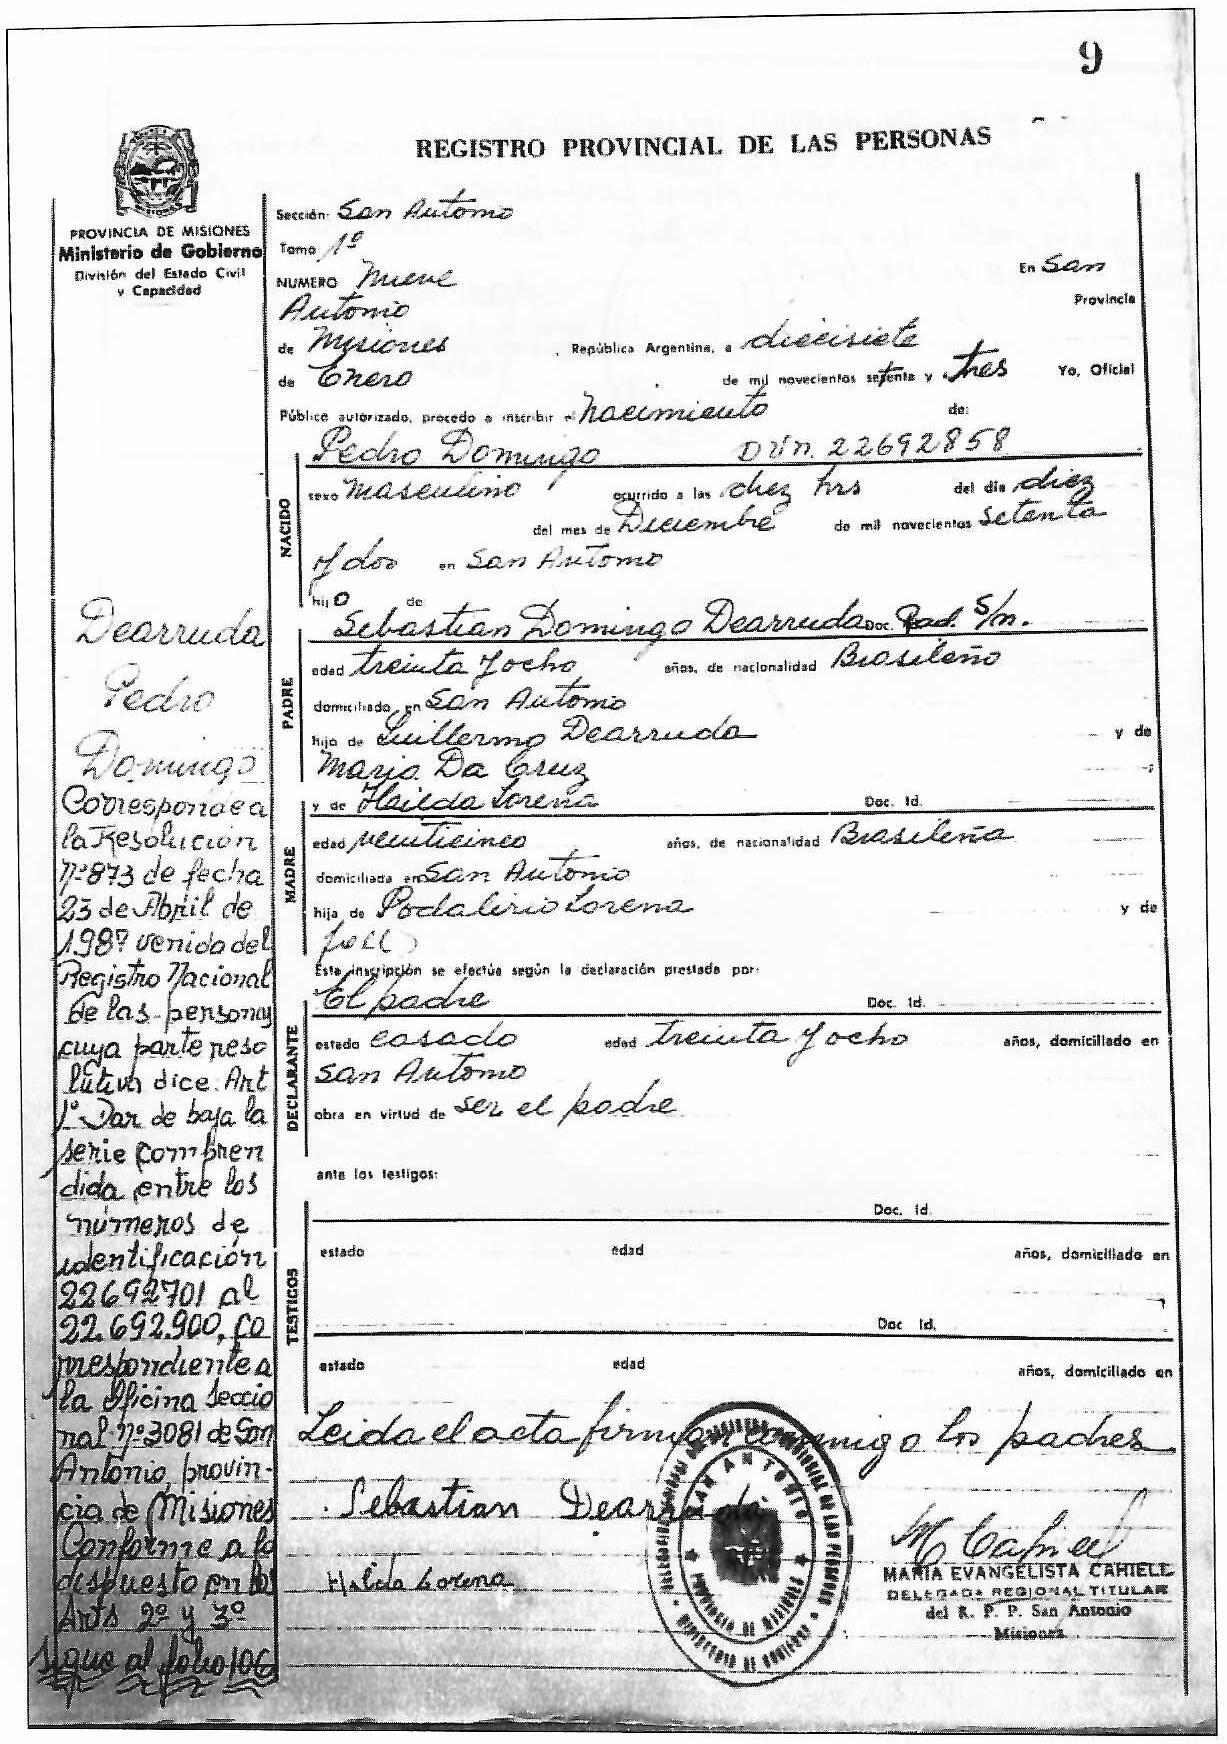 9
REGISTRO PROVINCIAL DE LAS PERSONAS
PROVINCIA DE MISIONES
Ministerio de Gobierno
División del Estado Civil
y Capacidad
Sección: San Antonio
Tomo 1º
NUMERO Nueve En San
Antonio Provincia
de Misiones, República Argentina, a diecisiete
de Enero de mil novecientos setenta y tres Yo, Oficial
Público autorizado, procedo a inscribir el Nacimiento de:
Pedro Domingo DNI. 22692858
NACIDO
sexo Masculino ocurrido a las diez hrs del día diez
del mes de Diciembre de mil novecientos setenta
y dos en San Antonio
hijo de
Sebastian Domingo Dearruda Doc. s/n.
PADRE
edad treinta y ocho años, de nacionalidad Brasileño
domiciliado en San Antonio
hijo de Guillermo Dearruda y de
Maria Da Cruz
y de Hailda Lorena Doc. Id.
MADRE
edad veinticinco años, de nacionalidad Brasileña
domiciliada en San Antonio
hija de Podalirio Lorena y de
Esta inscripción se efectúa según la declaración prestada por:
El padre Doc. Id.
DECLARANTE
estado casado edad treinta y ocho años, domiciliado en
San Antonio
obra en virtud de ser el padre
ante los testigos:
Doc. Id.
TESTIGOS
estado edad años, domiciliado en
Doc Id.
estado edad años, domiciliado en
Leida el acta firman conmigo los padres
Sebastian Dearruda
Halida Lorena
M Cahiell
MARIA EVANGELISTA CAHIELL
DELEGADA REGIONAL TITULAR
del R. P. P. San Antonio
Misiones
SAN ANTONIO
PROVINCIA DE MISIONES
MINISTERIO DE GOBIERNO
Dearruda
Pedro
Domingo
Corresponde a
la Resolución
Nº 873 de fecha
23 de Abril de
1987 venida del
Registro Nacional
de las personas
cuya parte reso
lutiva dice: Art
1º Dar de baja la
serie compren
dida entre los
números de
identificación
22692701 al
22.692.900, co
rrespondiente a
la Oficina Seccio
nal nº 3081 de San
Antonio, provin-
cia de Misiones
Conforme a lo
dispuesto en los
Arts 2º y 3º
Sigue al folio 106